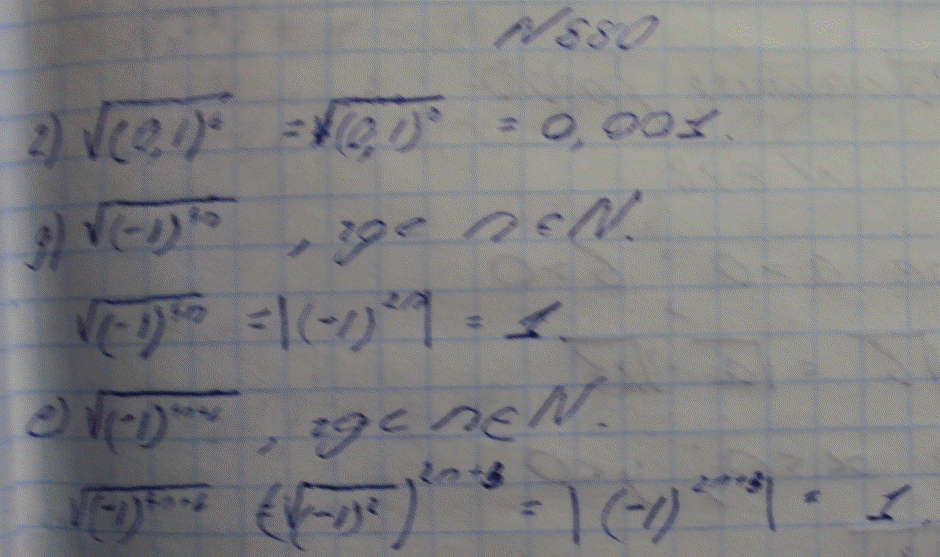 N 550
г) √(0,1)⁶ = √(0,1)³ = 0,001.
д) √(-1)⁴ⁿ, где n ∈ N.
√(-1)⁴ⁿ = |(-1)²ⁿ| = 1.
е) √(-1)⁴ⁿ⁺⁶, где n ∈ N.
√(-1)⁴ⁿ⁺⁶ (√(-1)²)²ⁿ⁺³ = |(-1)²ⁿ⁺³| = 1.